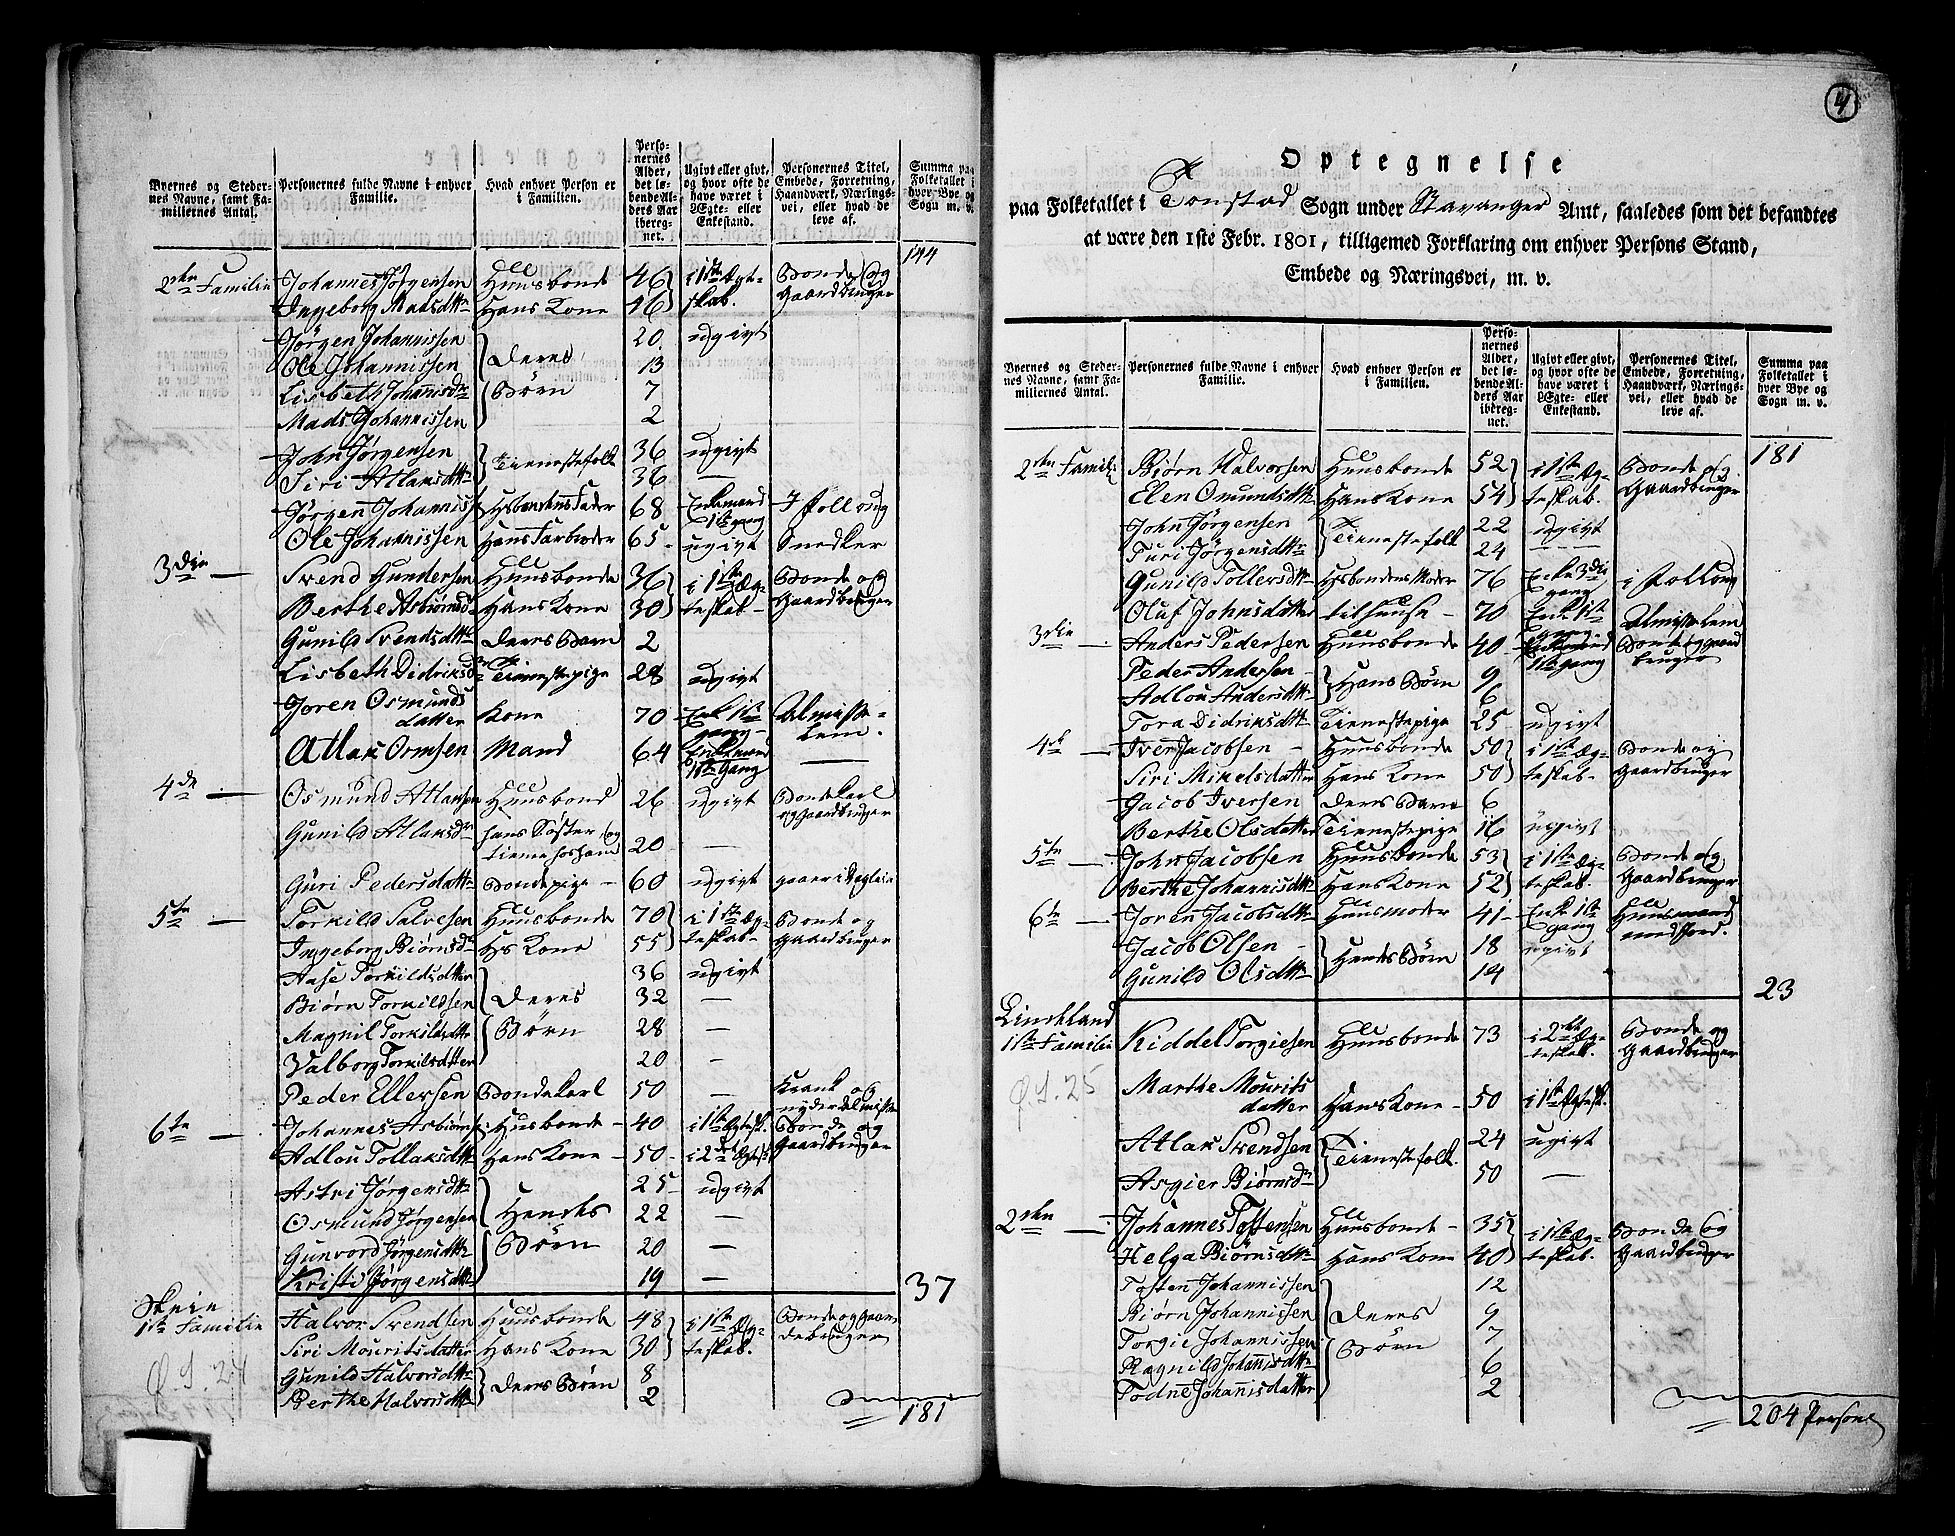 Byernes og Stedernes Navne, samt Familiernes Antal.
Personernes fulde Navne i enhver Familie.
Hvad enhver Person er i Familien.
Personernes Alder, det løbende Alders Aar iberegnet.
Ugivt eller givt, og hvor ofte de have været i Ægte- eller Enkestand.
Personernes Titel, Embede, Forretning, Haandværk, Næringsvei, eller hvad de leve af.
Summa paa Folketallet i hver Bye og Sogn m. v.
144
2den Familie Johannes Jørgensen Huusbonde 46 i 1ste Ægt- Bonde og
Ingeborg Madsdttr Hans Kone 46 skab. Gaardbruger
Jørgen Johannissen 20 ugivt
Ole Johannissen Deres 13
Lisbeth Johannisdr Børn 7
Mads Johannissen 2
John Jørgensen 36 ugivt
Siri Atlaksdttr Tienestefolk 36 —
Jørgen Johanniss Hsbondens Fader 68 Enkemand 1ste gang I Folloug
Ole Johannissen Hans Farbroder 65 ugivt Snedker
3die — Svend Gundersen Huusbonde 36 i 1ste Æg- Bonde og
Berthe Asbiørnsd Hans Kone 30 teskab Gaardbruger
Gunild Svendsdttr Deres Barn 2
Lisbeth Didriksdr Tienestepige 28 ugivt
Joren Osmunds
datter Kone 70 Enke 1ste gang Almisse-
lem.
Atlak Ormsen Mand 64 Enkemand 1ste Gang —
4de — Osmund Atlaksen Huusbond 26 ugivt Bondekarl
og Gaardbruger
Gunild Atlaksdr hans Søster og
tiene hos ham 20 —
Guri Pedersdattr Bondepige 60 ugivt gaaer i Læglein
5te — Torkild Salvesen Huusbonde 70 i 1ste Æg- Bonde og
Ingeborg Biørnsdr Hs Kone 55 teskab Gaardbruger
Aase Torkildsdatter 36 ugivt
Biørn Torkildsen Deres 32 —
Magnil Torkildsdttr Børn 28 —
Valborg Torkilsdatter 20 —
Peder Ellevsen Bondekarl 50 — Krank og
nyder Almisse
6te — Johannes Asbiørns Husbonde 40 i 1ste Ægtesk. Bonde og
Adlou Tollaksdttr Hans Kone 50 i 2det Ægtesk Gaardbruger
Astri Jørgensdttr 25 ugivt
Osmund Jørgensen Hendes 22 —
Gunvord Jørgensdttr Børn 20 —
Kristi Jørgensdttr 19 —
37
Skeie
1ste Familie Halvor Svendsen Huusbonde 48 i 1ste Æg- Bonde og Gaar-
Siri Mouritsdatter Hans Kone 30 teskab. debruger
Gunild Halvorsdttr 8
Ø. S. 24
Berthe Halvorsdttr Deres Børn 2
181
4
Optegnelse
paa Folketallet i Tonstad Sogn under Stavanger Amt, saaledes som det befandtes
at være den 1ste Febr. 1801, tilligemed Forklaring om enhver Persons Stand,
Embede og Næringsvei, m. v.
Byernes og Stedernes Navne, samt Familiernes Antal.
Personernes fulde Navne i enhver Familie.
Hvad enhver Person er i Familien.
Personernes Alder, det løbende Alders Aar iberegnet.
Ugivt eller givt, og hvor ofte de have været i Ægte- eller Enkestand.
Personernes Titel, Embede, Forretning, Haandværk, Næringsvei, eller hvad de leve af.
Summa paa Folketallet i hver Bye og Sogn m. v.
181
2den Famili Biørn Halvorsen Huusbonde 52 i 1ste Æg- Bonde og
Elen Omundsdttr Hans Kone 54 teskab. Gaardbruger
John Jørgensen 22 ugivt
Turi Jørgensdttr Tienestefolk 24 —
Gunild Tollefsdttr Hsbondens Moder 76 Enke 3die gang i Folloug
Oluf Johnsdatter tilhuse 70 Enke 1ste gang Almisselem
3die — Anders Pedersen Huusbonde 40 Enkemand 1ste gang Bonde og gaard
bruger
Peder Andersen 9
Adlou Andersdttr Hans Børn 6
Tora Didriksdttr Tienestepige 25 ugivt
4de — Iver Jacobsen Huusbonde 50 i 1ste Æg- Bonde og
Siri Mikelsdatter Hans Kone 50 teskab Gaardbruger
Jacob Iversen Deres Barn 6
Berthe Olsdatter Tienestepige 16 ugivt
5te — John Jacobsen Huusbonde 53 i 1ste Æg- Bonde og
Berthe Johannisdttr Hans Kone 52 teskab. Gaardbruger
6te — Joren Jacobsdttr Huusmoder 41 Enke 1ste gang Huusmand
med Jord.
Jacob Olsen 18 ugivt
Gunild Olsdttr Hendes Børn 14
23
Lindland
1ste Familie Kiddel Torgiesen Huusbonde 73 i 2det Æg- Bonde og
teskab. Gaardbruger
Ø. S. 25
Marthe Mourits
datter Hans Kone 50 i 1ste Ægtesk.
Atlak Svendsen 24 ugivt
Asgier Biørnsdr Tienestefolk. 50 —
2den — Johannes Tostensen Huusbonde 35 i 1ste Æg- Bonde og
Helga Biørnsdttr Hans Kone 40 teskab. Gaardbruger
Tosten Johannissen 12
Biørn Johannissen Deres 9
Torgie Johannissen Børn 7
Ragnild Johannisdttr 6
Todne Johannisdatter 2
204 Persone